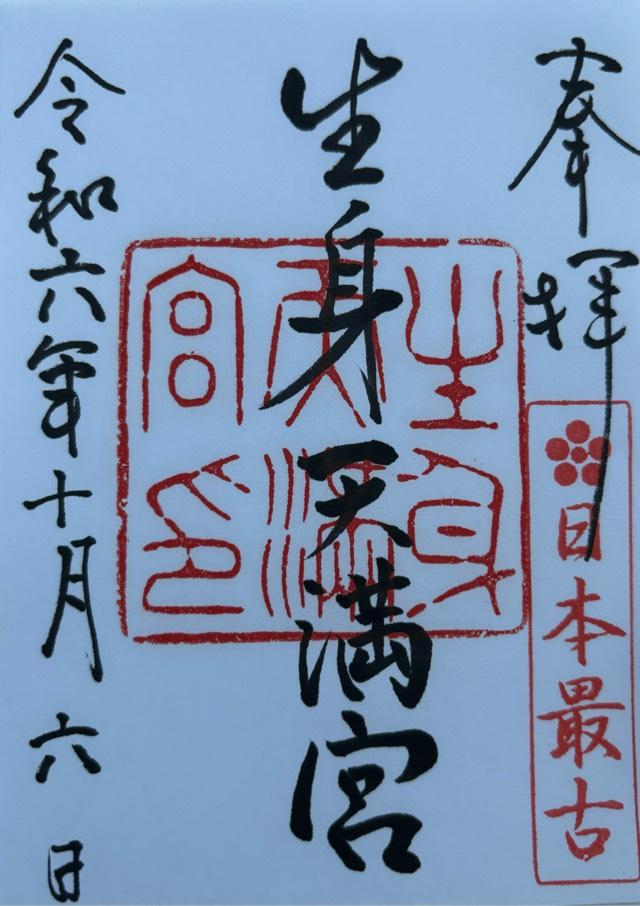 奉拝
日本最古
生身天満宮
生身
天満
宮印
令和六年十月六日